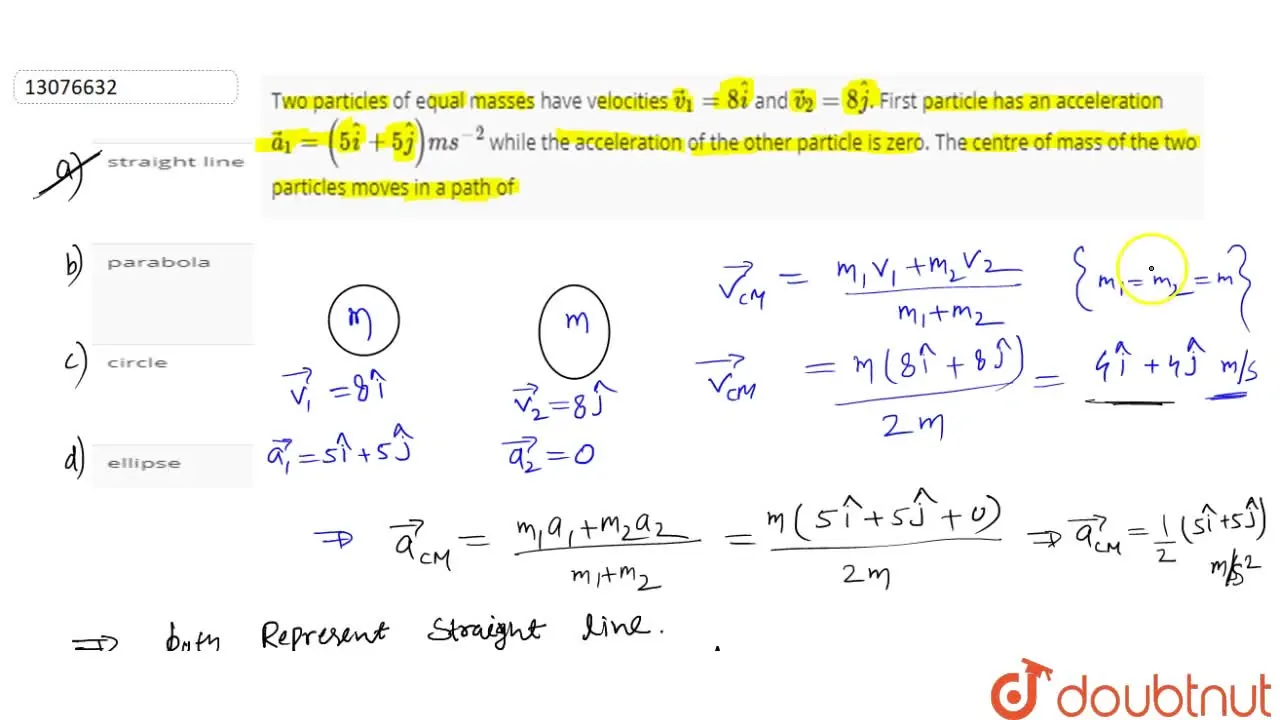 13076632
Two particles of equal masses have velocities v⃗₁ = 8î and v⃗₂ = 8ĵ. First particle has an acceleration
a⃗₁ = (5î + 5ĵ) ms⁻² while the acceleration of the other particle is zero. The centre of mass of the two
particles moves in a path of
a) straight line
b) parabola
c) circle
d) ellipse
m
m
v⃗₁ = 8î
v⃗₂ = 8ĵ
a⃗₁ = 5î + 5ĵ
a⃗₂ = 0
v⃗CM = (m₁v₁ + m₂v₂) / (m₁ + m₂) {m₁ = m₂ = m}
v⃗CM = m(8î + 8ĵ) / 2m = 4î + 4ĵ m/s
⇒ a⃗CM = (m₁a₁ + m₂a₂) / (m₁ + m₂) = m(5î + 5ĵ + 0) / 2m ⇒ a⃗CM = 1/2 (5î + 5ĵ) m/s²
⇒ both Represent Straight line.
doubtnut